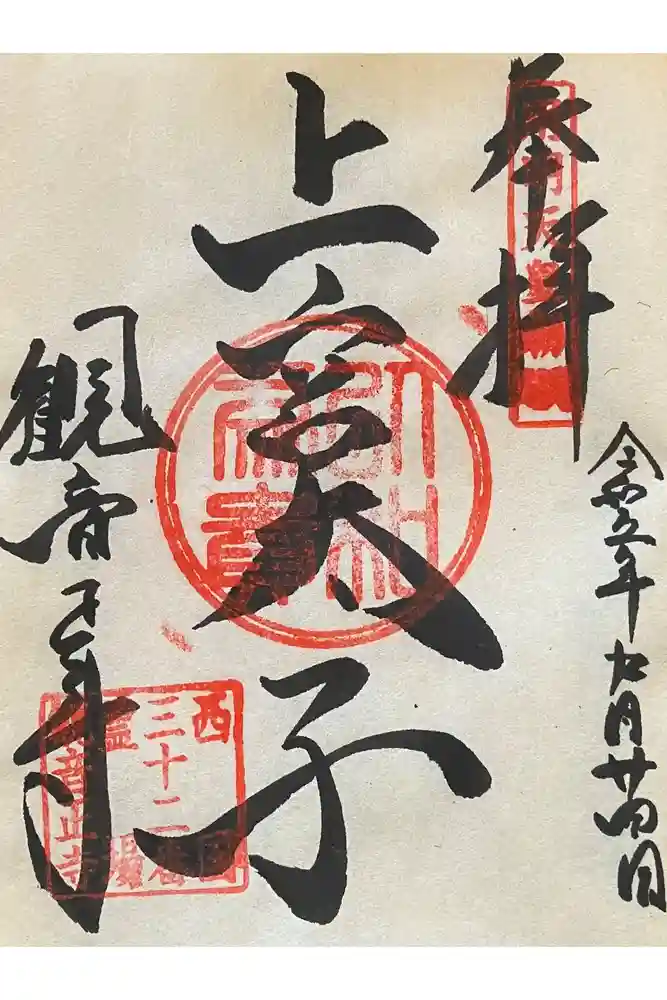 奉拝
令和五年九月廿四日
上宮太子
観音正寺
西国
三十二番
霊場
観音正寺